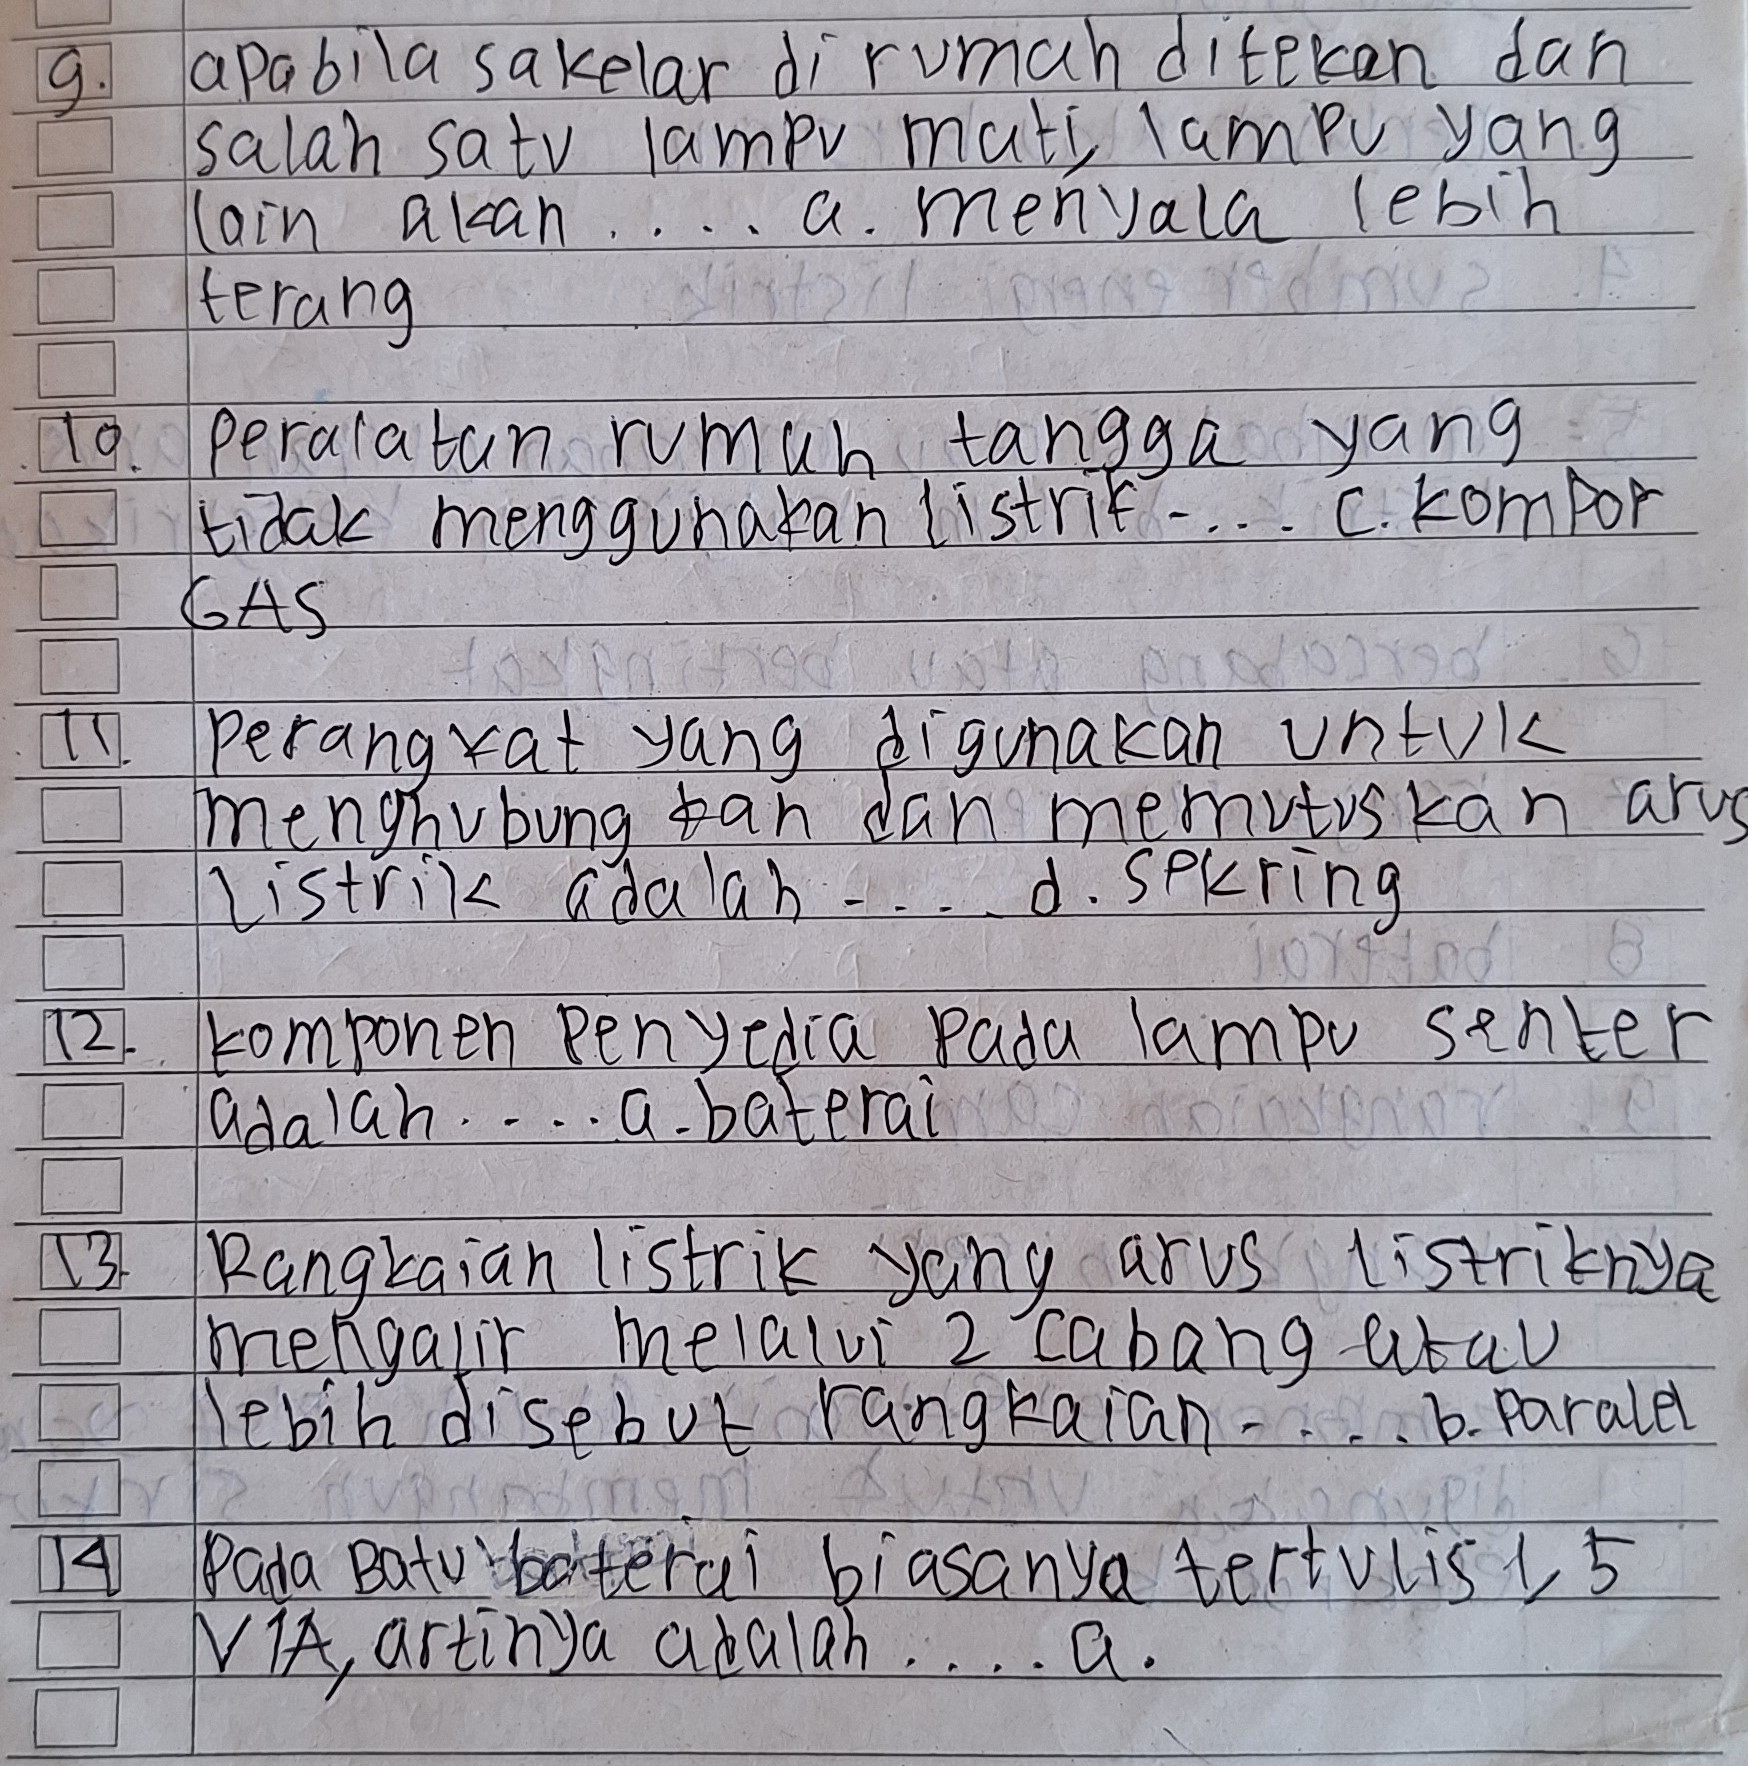 9. apabila sakelar di rumah ditekan dan
salah satu lampu mati, lampu yang
lain akan . . . . a. menyala lebih
terang
10. Peralatan rumah tangga yang
tidak menggunakan listrik . . . . c. kompor
GAS
11. Perangkat yang digunakan untuk
menghubungkan dan memutuskan arus
listrik adalah . . . . d. sekring
12. komponen Penyedia Pada lampu senter
adalah . . . . a. baterai
13. Rangkaian listrik yang arus listriknya
mengalir melalui 2 cabang atau
lebih disebut rangkaian . . . . b. Paralel
14 Pada Batu baterai biasanya tertulis 1,5
V1A, artinya adalah . . . . a.